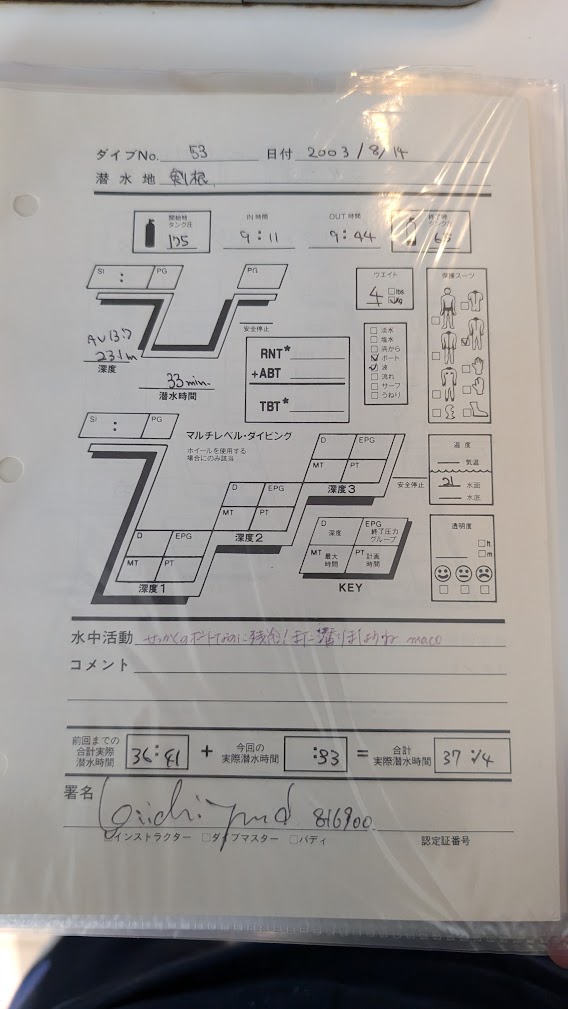 ダイブNo. 53 日付 2003/8/14
潜水地 剣根
開始時タンク圧 IN時間 9:11 OUT時間 9:44 終了時タンク圧
SI : PG PG
安全停止
AV 13.7
23.1m
深度
33min.
潜水時間
RNT*
+ABT
TBT*
ウエイト
4 □lbs ☑kg
□淡水
□塩水
□浜から
☑ボート
☑波
□流れ
□サーフ
□うねり
保護スーツ
SI : PG
マルチレベル・ダイビング
ホイールを使用する
場合にのみ該当
D EPG
MT PT
深度3
安全停止
D EPG
MT PT
深度2
D EPG
MT PT
深度1
D 深度 EPG 終了圧力グループ
MT 最大時間 PT 計画時間
KEY
温度
気温
21 水面
水底
透明度
□ft
□m
水中活動 せっかくのボートなのに残念!またに潜りましょうね maco
コメント
前回までの合計実際潜水時間 36:41 + 今回の実際潜水時間 :33 = 合計実際潜水時間 37:14
署名 816900
インストラクター □ダイブマスター □バディ 認定証番号